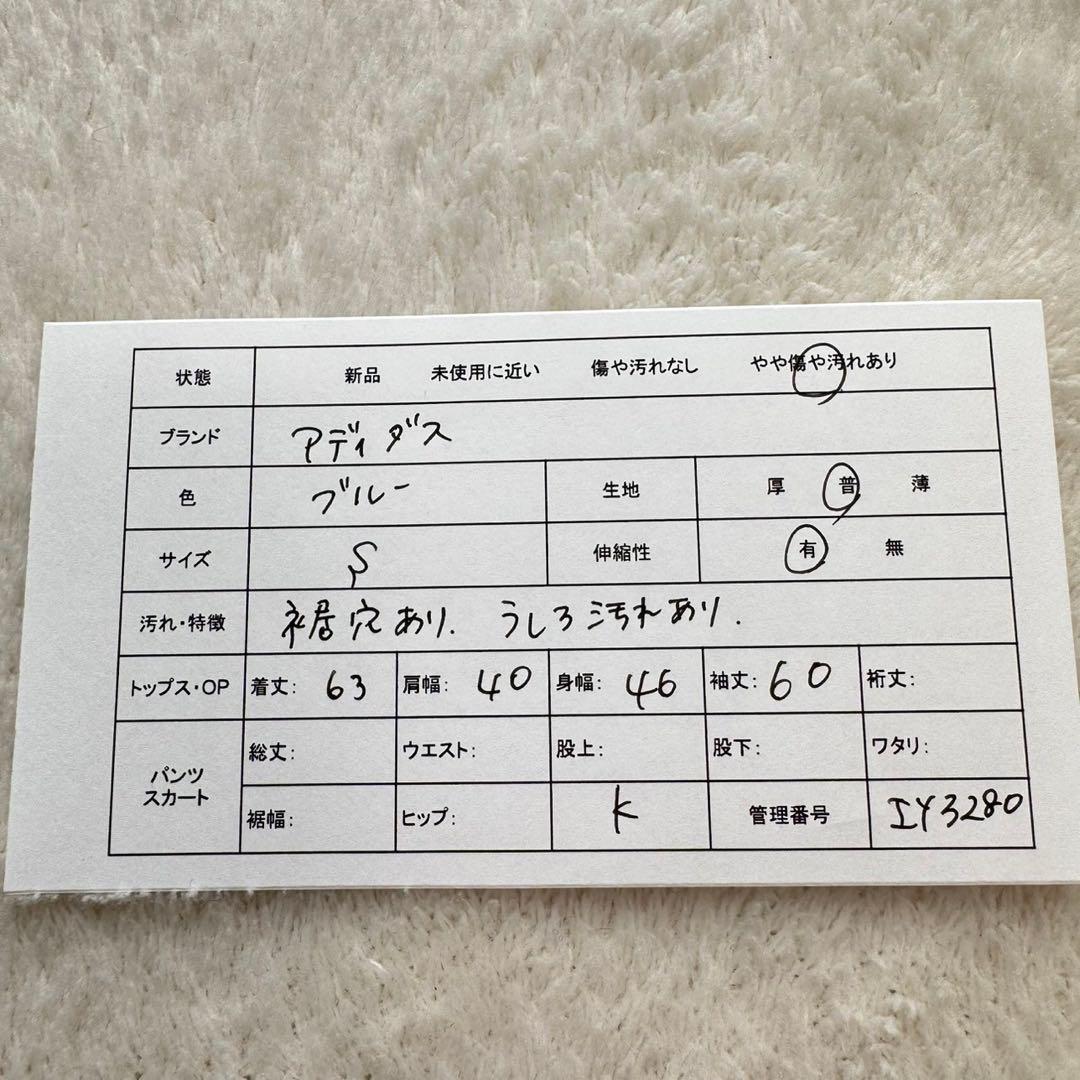 状態 新品 未使用に近い 傷や汚れなし やや傷や汚れあり
ブランド アディダス
色 ブルー 生地 厚 普 薄
サイズ S 伸縮性 有 無
汚れ・特徴 裾穴あり. うしろ汚れあり.
トップス・OP 着丈: 63 肩幅: 40 身幅: 46 袖丈: 60 裄丈:
パンツ スカート 総丈: ウエスト: 股上: 股下: ワタリ:
裾幅: ヒップ: K 管理番号 IY3280